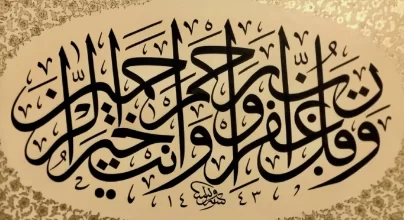 وقل رب اغفر وارحم وأنت خير الراحمين
١٤٤٣